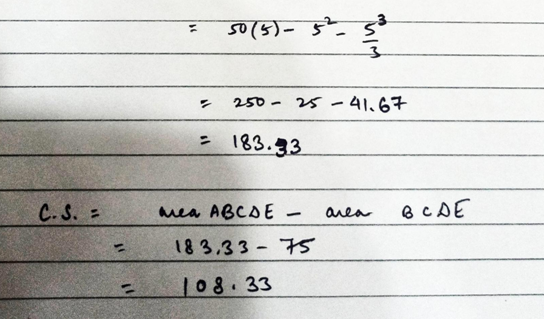 = 50(5) - 5² - 5³/3
= 250 - 25 - 41.67
= 183.33
C.S. = area ABCDE - area BCDE
= 183.33 - 75
= 108.33